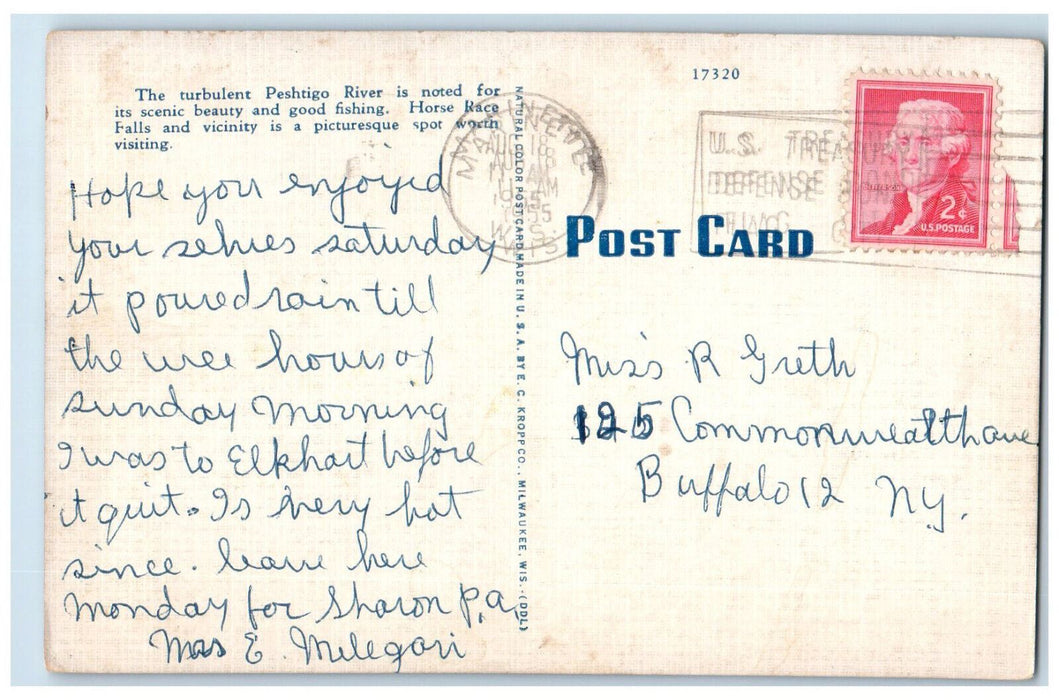 17320
The turbulent Peshtigo River is noted for
its scenic beauty and good fishing. Horse Race
Falls and vicinity is a picturesque spot worth
visiting.
Hope you enjoyed
your selves saturday
it poured rain till
the wee hours of
sunday morning
I was to Elkhart before
it quit. Is very hot
since. leave here
monday for Sharon P.a.
Mrs E. Milegari
NATURAL COLOR POST CARD MADE IN U.S.A. BY E. C. KROPP CO., MILWAUKEE, WIS. (DDL)
MARINETTE
AUG 18
AM
1955
WIS.
U.S. TREASURY
DEFENSE BONDS
JEFFERSON
2¢
U.S. POSTAGE
POST CARD
Miss R Greth
125 Commonwealth ave
Buffalo 12 Ny.